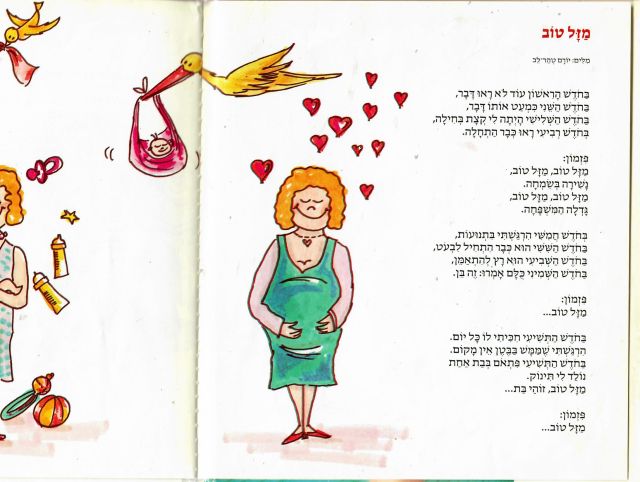 מַזָּל טוֹב
מִלִּים: יוֹרָם טְהַר־לֵב
בַּחֹדֶשׁ הָרִאשׁוֹן עוֹד לֹא רָאוּ דָּבָר,
בַּחֹדֶשׁ הַשֵּׁנִי כִּמְעַט אוֹתוֹ דָּבָר,
בַּחֹדֶשׁ הַשְּׁלִישִׁי הָיְתָה לִי קְצָת בְּחִילָה,
בְּחֹדֶשׁ רְבִיעִי רָאוּ כְּבָר הַתְחָלָה.
פִּזְמוֹן:
מַזָּל טוֹב, מַזָּל טוֹב,
נָשִׁירָה בְּשִׂמְחָה.
מַזָּל טוֹב, מַזָּל טוֹב,
גָּדְלָה הַמִּשְׁפָּחָה.
בְּחֹדֶשׁ חֲמִשִּׁי הִרְגַּשְׁתִּי בִּתְנוּעוֹת,
בַּחֹדֶשׁ הַשִּׁשִּׁי הוּא כְּבָר הִתְחִיל לִבְעֹט,
בַּחֹדֶשׁ הַשְּׁבִיעִי הוּא רָץ לְהִתְאַמֵּן,
בַּחֹדֶשׁ הַשְּׁמִינִי כֻּלָּם אָמְרוּ: זֶה בֵּן.
פִּזְמוֹן:
מַזָּל טוֹב...
בַּחֹדֶשׁ הַתְּשִׁיעִי חִכִּיתִי לוֹ כָּל יוֹם.
הִרְגַּשְׁתִּי שֶׁמַּמָּשׁ בַּבֶּטֶן אֵין מָקוֹם.
בַּחֹדֶשׁ הַתְּשִׁיעִי פִּתְאֹם בְּבַת אַחַת
נוֹלַד לִי תִּינוֹק.
מַזָּל טוֹב, זוֹהִי בַּת...
פִּזְמוֹן:
מַזָּל טוֹב...